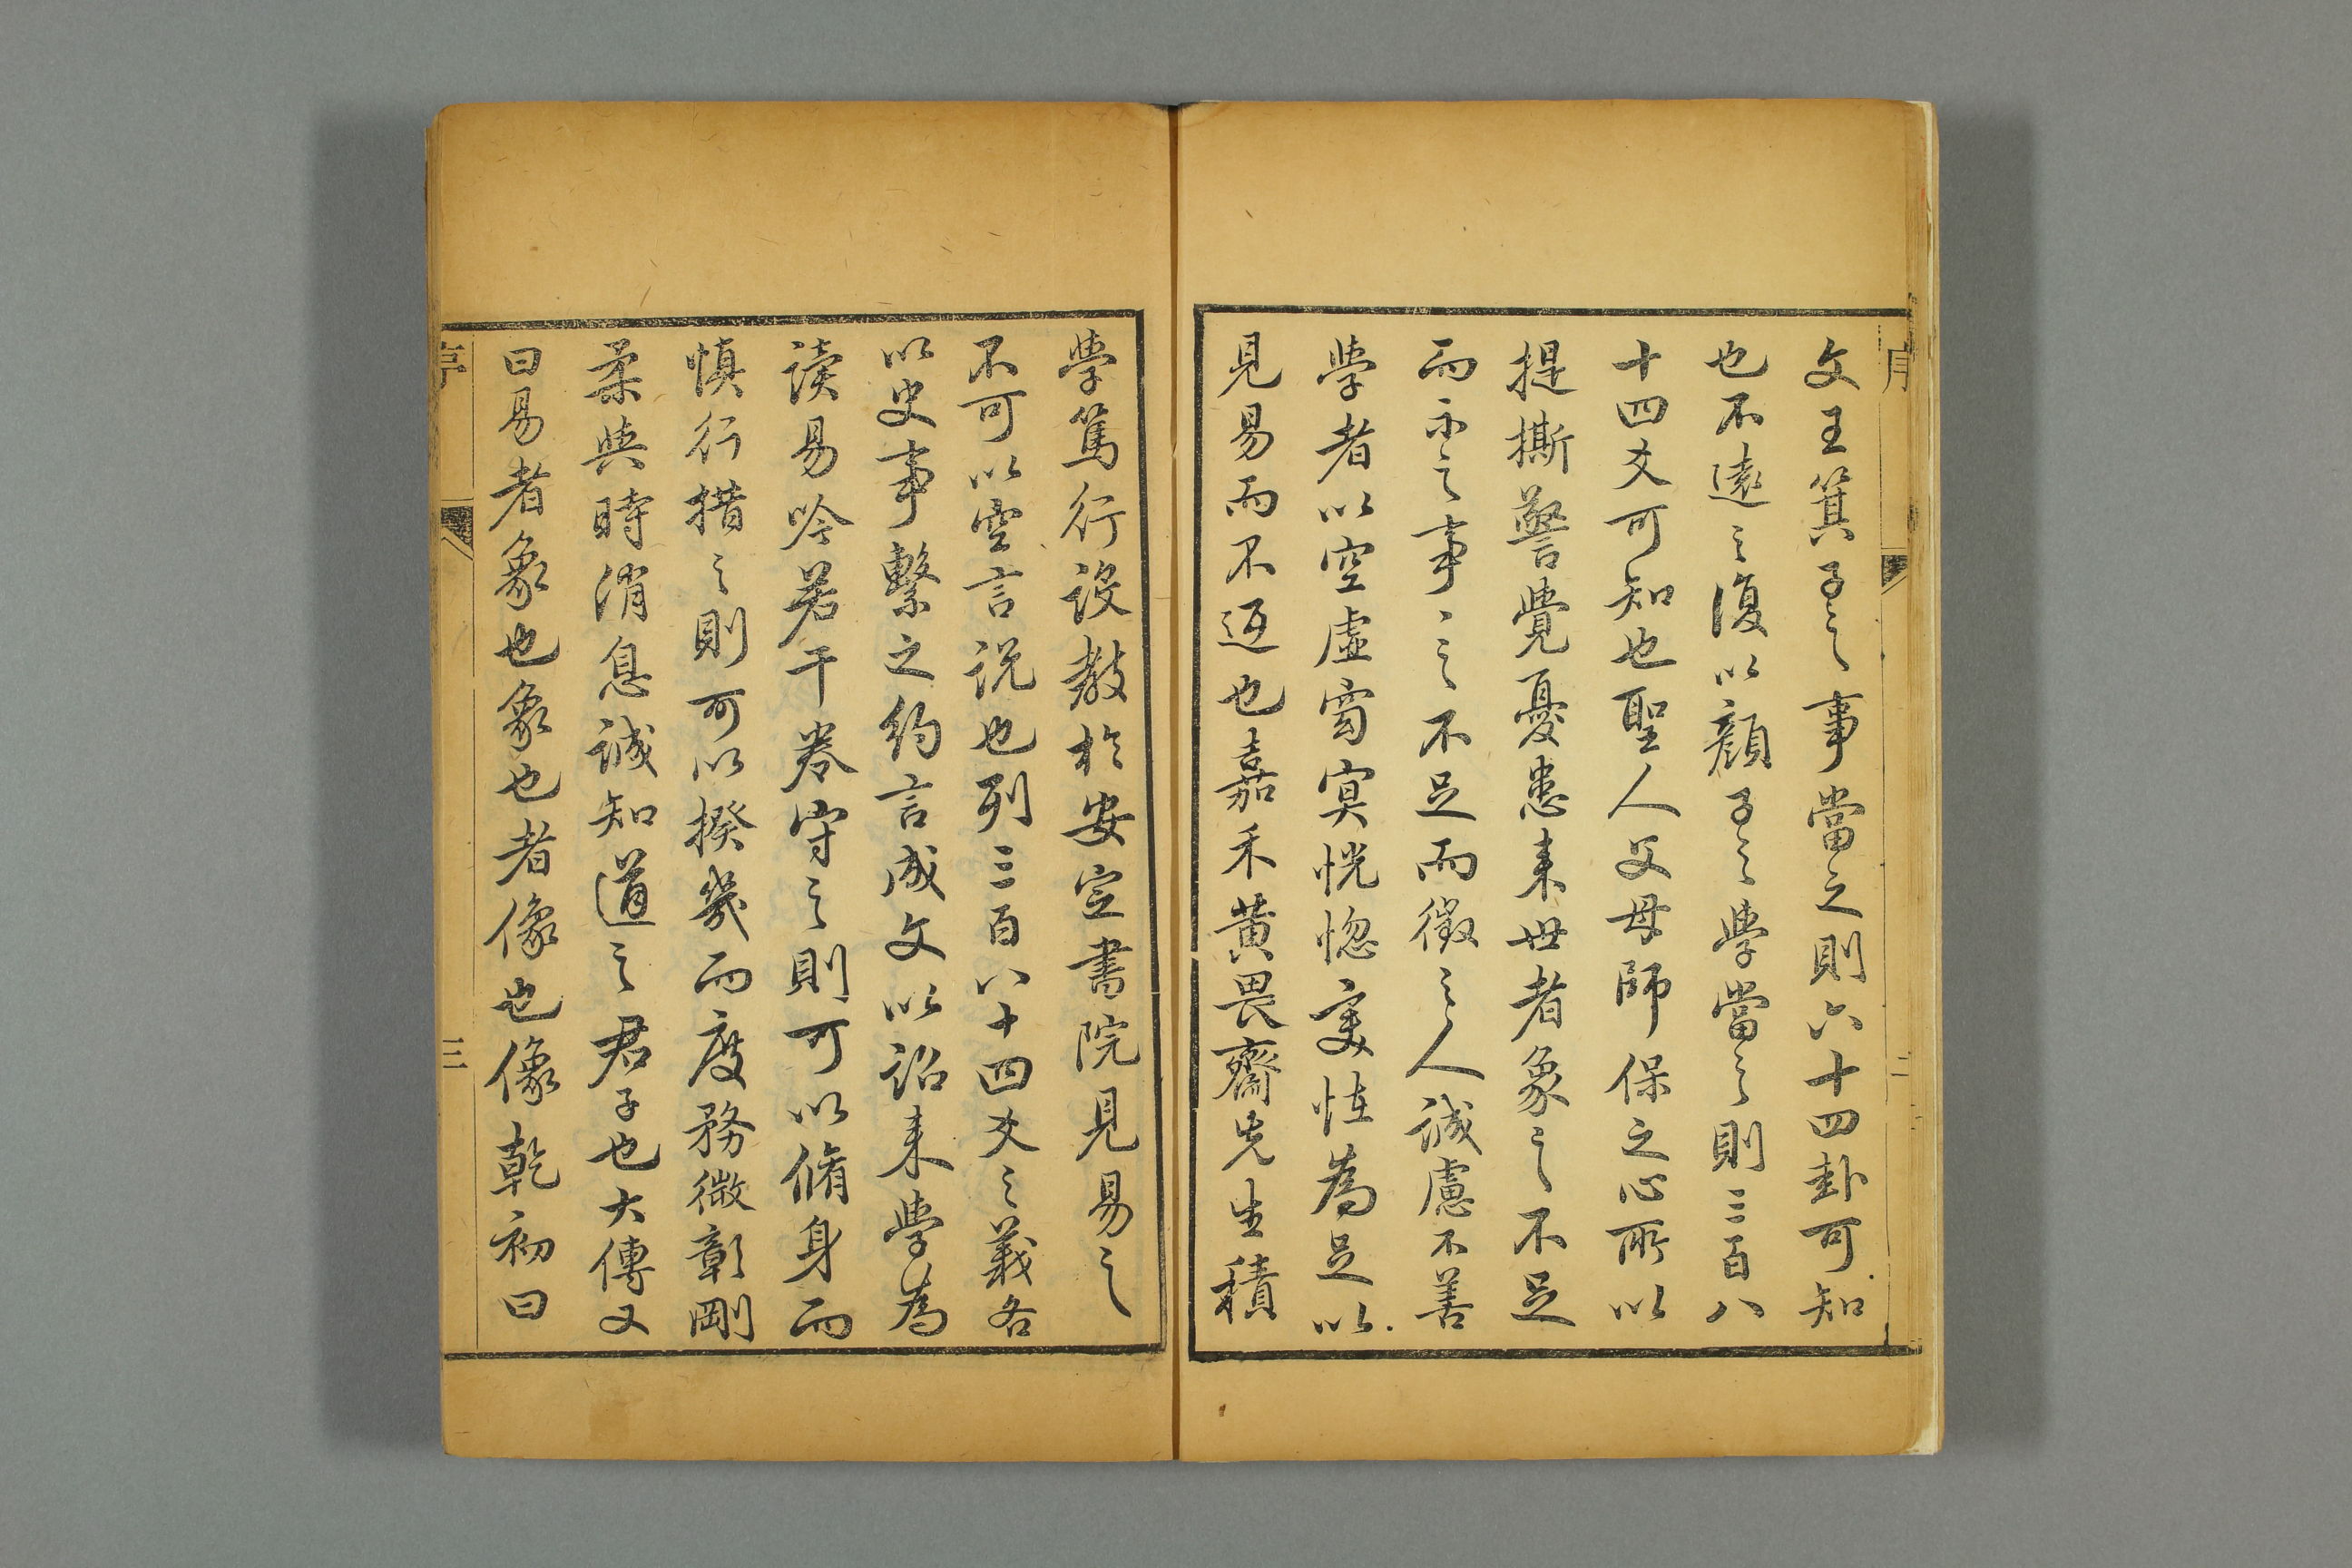 序
二
文王箕子之事當之則六十四卦可知
也不遠之復以顏子之學當之則三百八
十四爻可知也聖人父母師保之心所以
提撕警覺憂患来世者象之不足
而示之事〻之不足而徵之人誠慮不善
學者以空虛窅冥恍惚変怪為足以
見易而不返也嘉禾黃畏齋先生積
學篤行設教於安定書院見易之
不可以空言説也列三百八十四爻之義各
以史事繫之約言成文以詔来學為
读易吟若干卷守之則可以脩身而
慎行措之則可以揆幾而度務微彰剛
柔與時消息誠知道之君子也大傳又
曰易者象也象也者像也像乾初曰
序
三